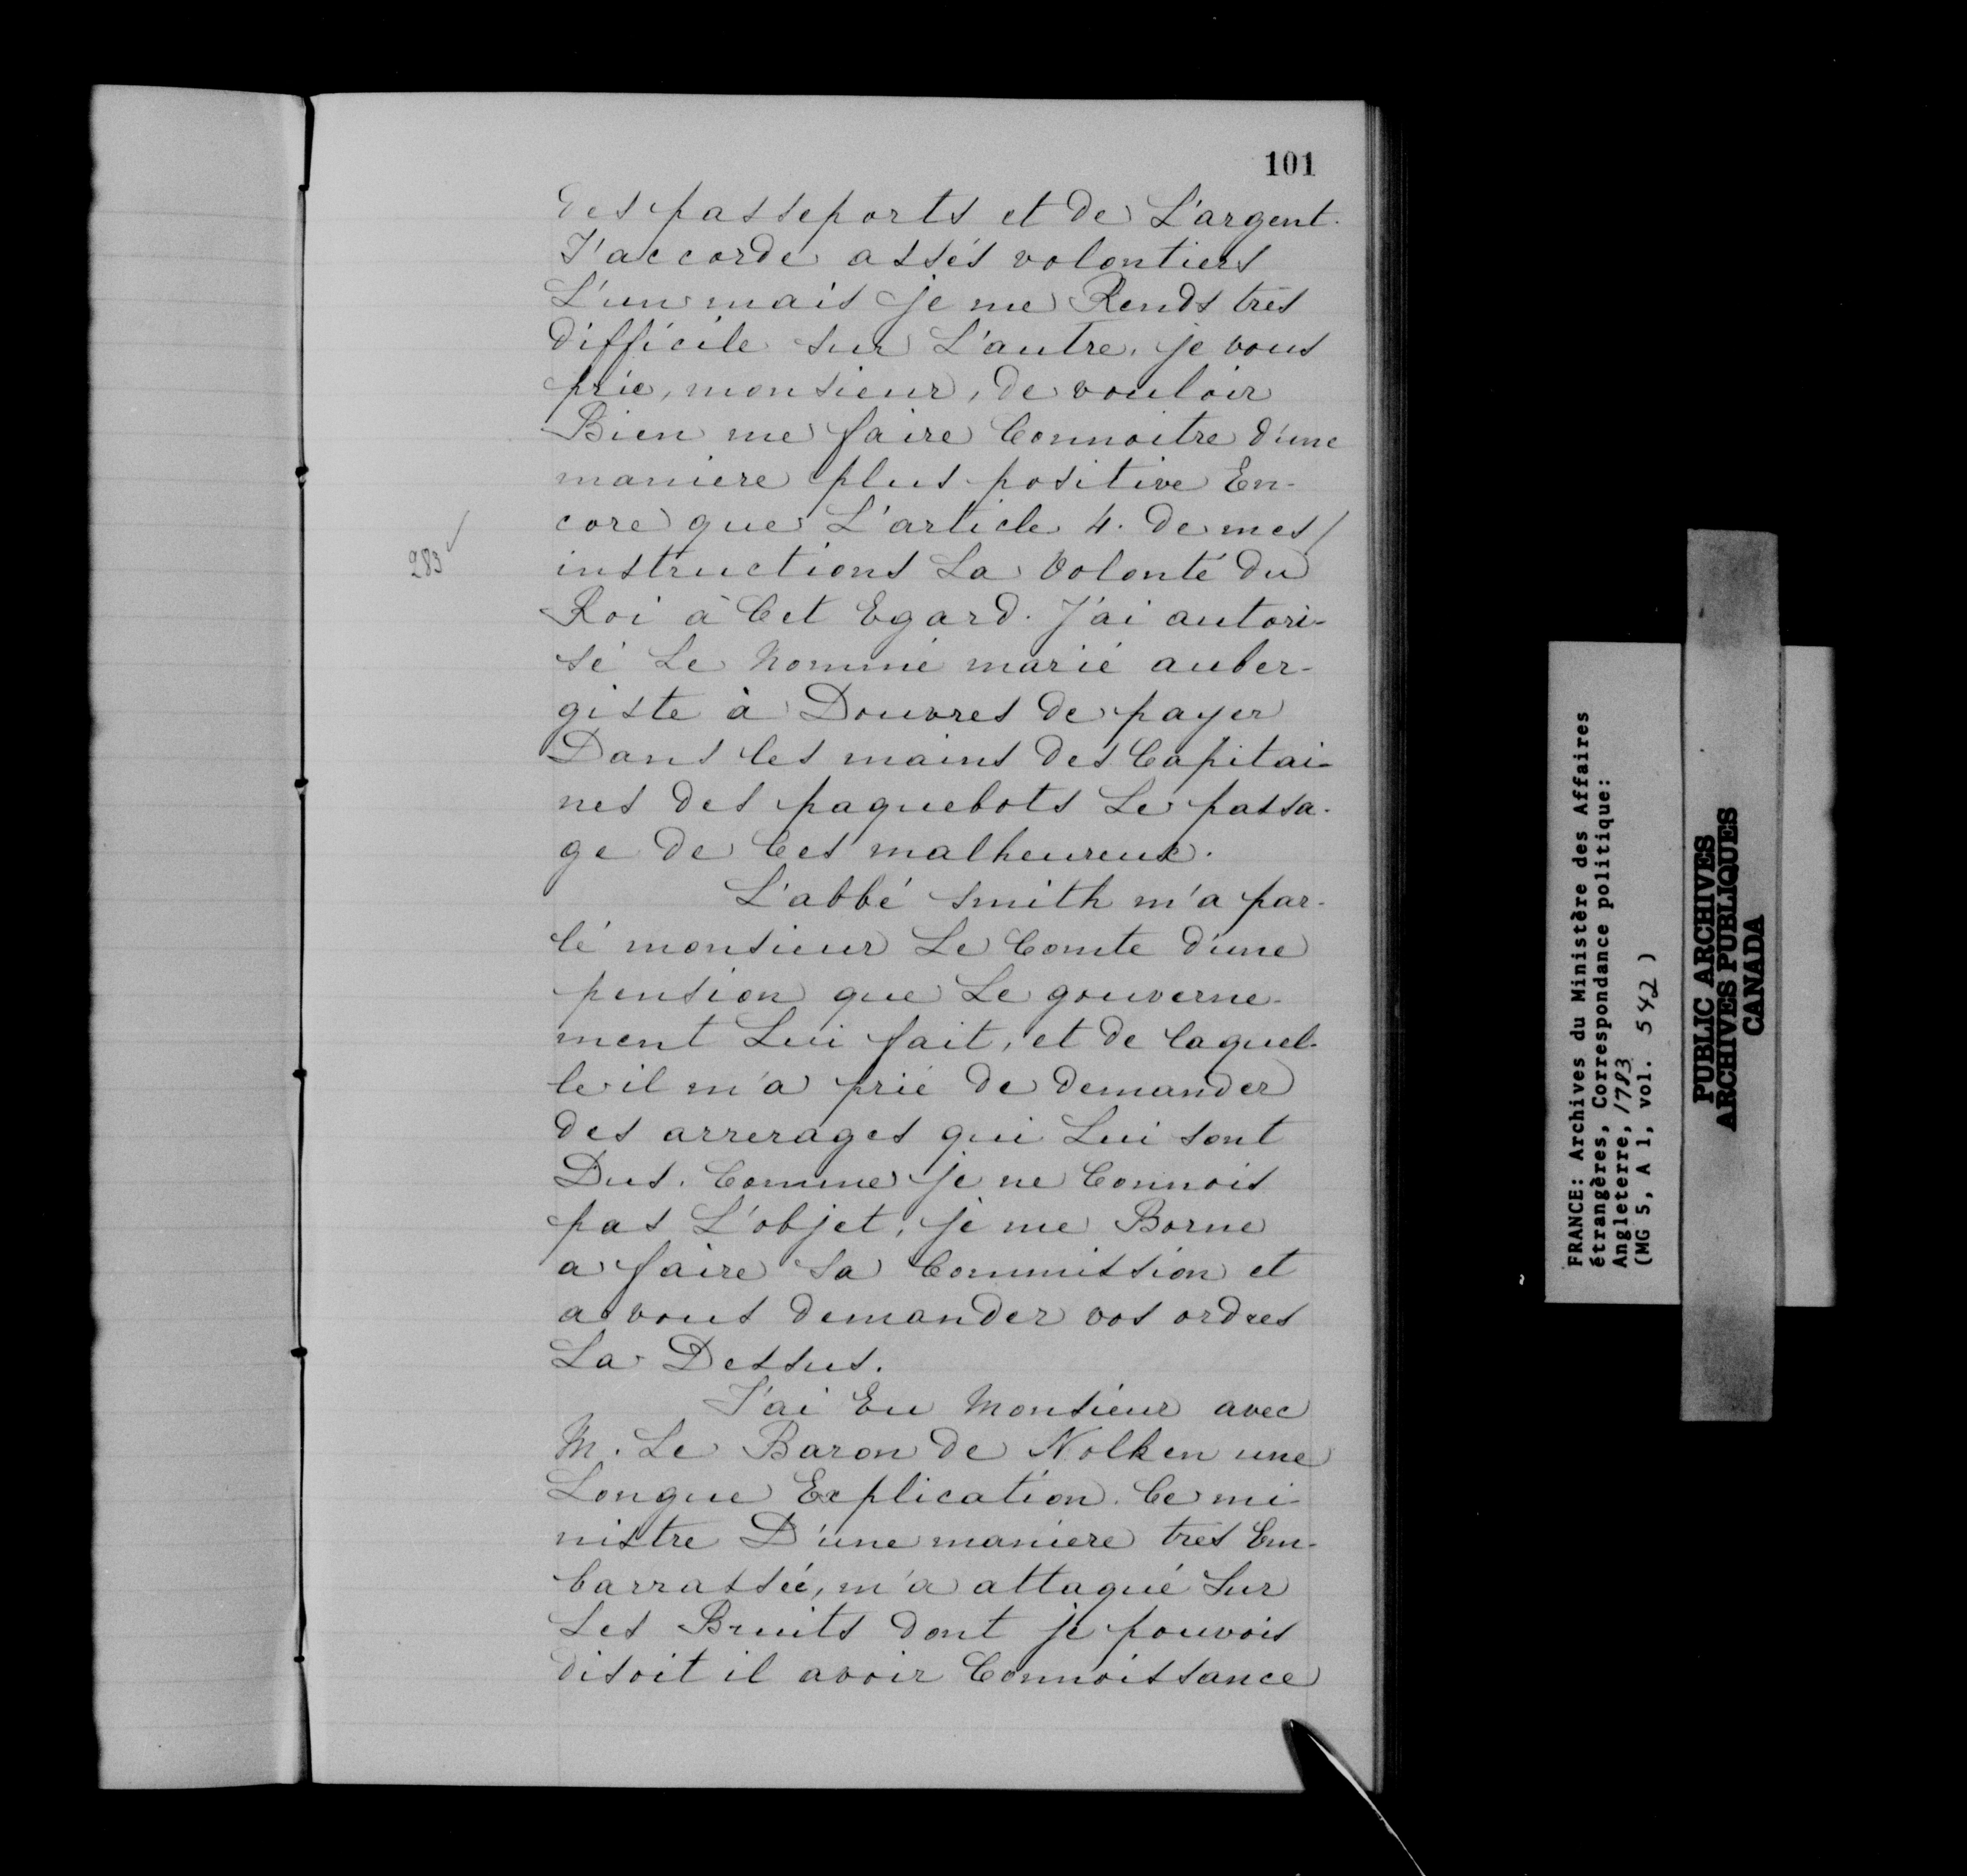 101
des passeports et de L'argent.
J'accorde assés volontiers
L'un mais je me Rends tres
difficile sur L'autre. je vous
prie, monsieur, de vouloir
Bien me faire Connoitre d'une
maniere plus positive En-
core que L'article 4. de mes /
283 ✓
instructions La Volonté du
Roi à Cet Egard. J'ai autori-
sé Le Nommé marié auber-
giste à Douvres de payer
Dans les mains des Capitai-
nes des paquebots Le passa-
ge de Ces malheureux.
L'abbé smith m'a par-
lé monsieur Le Comte d'une
pension que Le gouverne-
ment Lui fait, et de laquel-
le il m'a prié de demander
des arrerages qui Lui sont
Dus. Comme je ne Connois
pas L'objet, je me Borne
a faire sa Commission et
a vous demander vos ordres
La Dessus.
J'ai Eu Monsieur avec
M. Le Baron de Nolken une
Longue Explication. Ce mi-
nistre D'une maniere tres Em-
barrassée, m'a attaqué sur
Les Bruits dont je pouvois
disoit il avoir Connoissance
FRANCE: Archives du Ministère des Affaires
étrangères, Correspondance politique:
Angleterre, 1783
(MG 5, A 1, vol. 542 )
PUBLIC ARCHIVES
ARCHIVES PUBLIQUES
CANADA